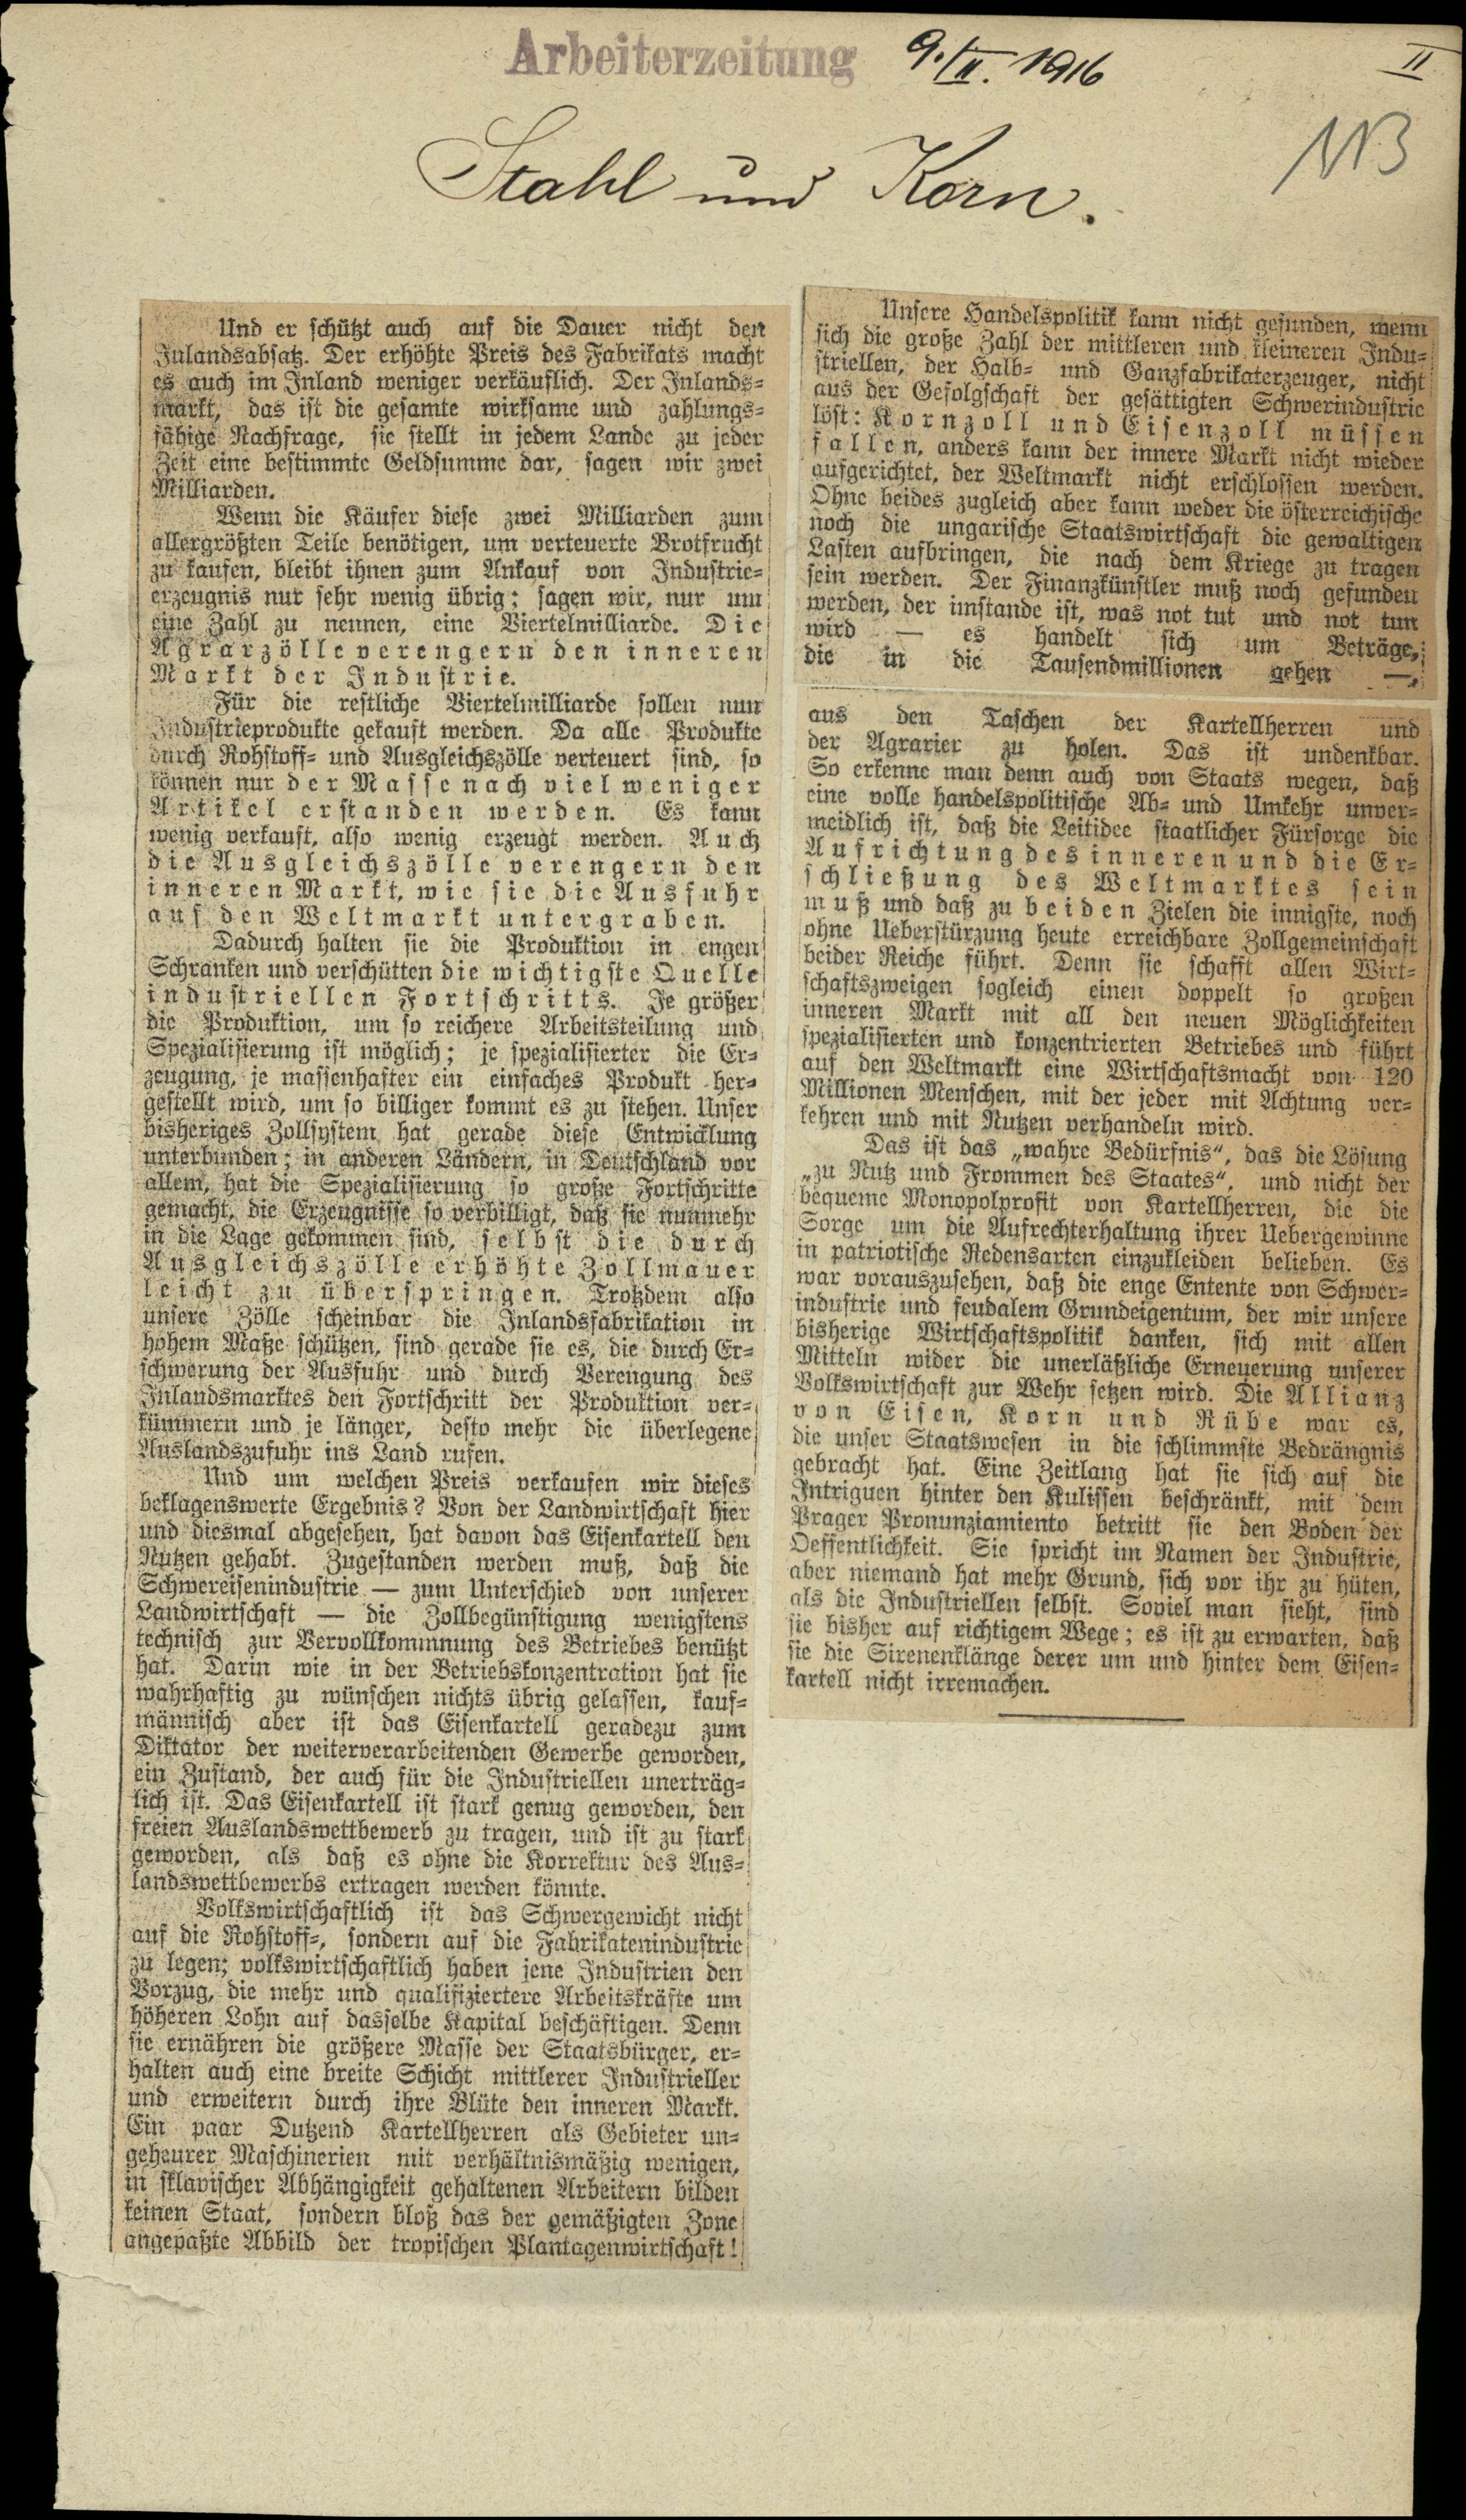 Arbeiterzeitung 9./II. 1916
II
NB
Stahl und Korn.
Und er schützt auch auf die Dauer nicht den
Inlandsabsatz. Der erhöhte Preis des Fabrikats macht
es auch im Inland weniger verkäuflich. Der Inlands-
markt, das ist die gesamte wirksame und zahlungs-
fähige Nachfrage, sie stellt in jedem Lande zu jeder
Zeit eine bestimmte Geldsumme dar, sagen wir zwei
Milliarden.
Wenn die Käufer diese zwei Milliarden zum
allergrößten Teile benötigen, um verteuerte Brotfrucht
zu kaufen, bleibt ihnen zum Ankauf von Industrie-
erzeugnis nur sehr wenig übrig; sagen wir, nur um
eine Zahl zu nennen, eine Viertelmilliarde. Die
Agrarzölle verengern den inneren
Markt der Industrie.
Für die restliche Viertelmilliarde sollen nun
Industrieprodukte gekauft werden. Da alle Produkte
durch Rohstoff- und Ausgleichszölle verteuert sind, so
können nur der Masse nach viel weniger
Artikel erstanden werden. Es kann
wenig verkauft, also wenig erzeugt werden. Auch
die Ausgleichszölle verengern den
inneren Markt, wie sie die Ausfuhr
auf den Weltmarkt untergraben.
Dadurch halten sie die Produktion in engen
Schranken und verschütten die wichtigste Quelle
industriellen Fortschritts. Je größer
die Produktion, um so reichere Arbeitsteilung und
Spezialisierung ist möglich; je spezialisierter die Er-
zeugung, je massenhafter ein einfaches Produkt her-
gestellt wird, um so billiger kommt es zu stehen. Unser
bisheriges Zollsystem hat gerade diese Entwicklung
unterbunden; in anderen Ländern, in Deutschland vor
allem, hat die Spezialisierung so große Fortschritte
gemacht, die Erzeugnisse so verbilligt, daß sie nunmehr
in die Lage gekommen sind, selbst die durch
Ausgleichszölle erhöhte Zollmauer
leicht zu überspringen. Trotzdem also
unsere Zölle scheinbar die Inlandsfabrikation in
hohem Maße schützen, sind gerade sie es, die durch Er-
schwerung der Ausfuhr und durch Verengung des
Inlandsmarktes den Fortschritt der Produktion ver-
kümmern und je länger, desto mehr die überlegene
Auslandszufuhr ins Land rufen.
Und um welchen Preis verkaufen wir dieses
beklagenswerte Ergebnis? Von der Landwirtschaft hier
und diesmal abgesehen, hat davon das Eisenkartell den
Nutzen gehabt. Zugestanden werden muß, daß die
Schwereisenindustrie — zum Unterschied von unserer
Landwirtschaft — die Zollbegünstigung wenigstens
technisch zur Vervollkommnung des Betriebes benützt
hat. Darin wie in der Betriebskonzentration hat sie
wahrhaftig zu wünschen nichts übrig gelassen, kauf-
männisch aber ist das Eisenkartell geradezu zum
Diktator der weiterverarbeitenden Gewerbe geworden,
ein Zustand, der auch für die Industriellen unerträg-
lich ist. Das Eisenkartell ist stark genug geworden, den
freien Auslandswettbewerb zu tragen, und ist zu stark
geworden, als daß es ohne die Korrektur des Aus-
landswettbewerbs ertragen werden könnte.
Volkswirtschaftlich ist das Schwergewicht nicht
auf die Rohstoff-, sondern auf die Fabrikatenindustrie
zu legen; volkswirtschaftlich haben jene Industrien den
Vorzug, die mehr und qualifiziertere Arbeitskräfte um
höheren Lohn auf dasselbe Kapital beschäftigen. Denn
sie ernähren die größere Masse der Staatsbürger, er-
halten auch eine breite Schicht mittlerer Industrieller
und erweitern durch ihre Blüte den inneren Markt.
Ein paar Dutzend Kartellherren als Gebieter un-
geheurer Maschinerien mit verhältnismäßig wenigen,
in sklavischer Abhängigkeit gehaltenen Arbeitern bilden
keinen Staat, sondern bloß das der gemäßigten Zone
angepaßte Abbild der tropischen Plantagenwirtschaft!
Unsere Handelspolitik kann nicht gesunden, wenn
sich die große Zahl der mittleren und kleineren Indu-
striellen, der Halb- und Ganzfabrikaterzeuger, nicht
aus der Gefolgschaft der gesättigten Schwerindustrie
löst: Kornzoll und Eisenzoll müssen
fallen, anders kann der innere Markt nicht wieder
aufgerichtet, der Weltmarkt nicht erschlossen werden.
Ohne beides zugleich aber kann weder die österreichische
noch die ungarische Staatswirtschaft die gewaltigen
Lasten aufbringen, die nach dem Kriege zu tragen
sein werden. Der Finanzkünstler muß noch gefunden
werden, der imstande ist, was not tut und not tun
wird — es handelt sich um Beträge,
die in die Tausendmillionen gehen —,
aus den Taschen der Kartellherren und
der Agrarier zu holen. Das ist undenkbar.
So erkenne man denn auch von Staats wegen, daß
eine volle handelspolitische Ab- und Umkehr unver-
meidlich ist, daß die Leitidee staatlicher Fürsorge die
Aufrichtung des inneren und die Er-
schließung des Weltmarktes sein
muß und daß zu beiden Zielen die innigste, noch
ohne Ueberstürzung heute erreichbare Zollgemeinschaft
beider Reiche führt. Denn sie schafft allen Wirt-
schaftszweigen sogleich einen doppelt so großen
inneren Markt mit all den neuen Möglichkeiten
spezialisierten und konzentrierten Betriebes und führt
auf den Weltmarkt eine Wirtschaftsmacht von 120
Millionen Menschen, mit der jeder mit Achtung ver-
kehren und mit Nutzen verhandeln wird.
Das ist das „wahre Bedürfnis“, das die Lösung
„zu Nutz und Frommen des Staates“, und nicht der
bequeme Monopolprofit von Kartellherren, die die
Sorge um die Aufrechterhaltung ihrer Uebergewinne
in patriotische Redensarten einzukleiden belieben. Es
war vorauszusehen, daß die enge Entente von Schwer-
industrie und feudalem Grundeigentum, der wir unsere
bisherige Wirtschaftspolitik danken, sich mit allen
Mitteln wider die unerläßliche Erneuerung unserer
Volkswirtschaft zur Wehr setzen wird. Die Allianz
von Eisen, Korn und Rübe war es,
die unser Staatswesen in die schlimmste Bedrängnis
gebracht hat. Eine Zeitlang hat sie sich auf die
Intriguen hinter den Kulissen beschränkt, mit dem
Prager Pronunziamiento betritt sie den Boden der
Oeffentlichkeit. Sie spricht im Namen der Industrie,
aber niemand hat mehr Grund, sich vor ihr zu hüten,
als die Industriellen selbst. Soviel man sieht, sind
sie bisher auf richtigem Wege; es ist zu erwarten, daß
sie die Sirenenklänge derer um und hinter dem Eisen-
kartell nicht irremachen.